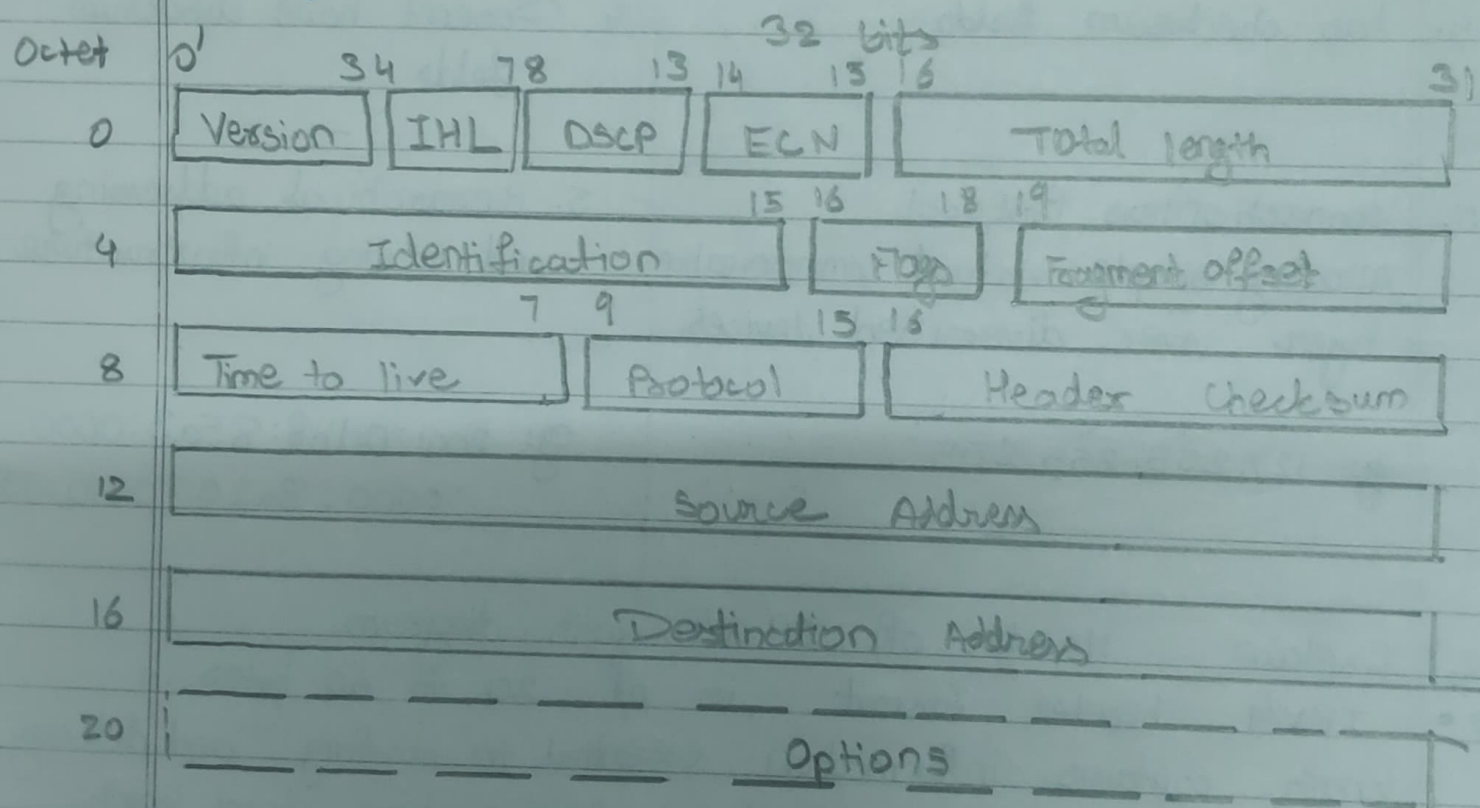 32 bits
Octet 0 34 78 13 14 15 16 31
0 Version IHL DSCP ECN Total length
15 16 18 19
4 Identification Flags Fragment offset
7 9 15 16
8 Time to live Protocol Header Checksum
12 Source Address
16 Destination Address
20 Options